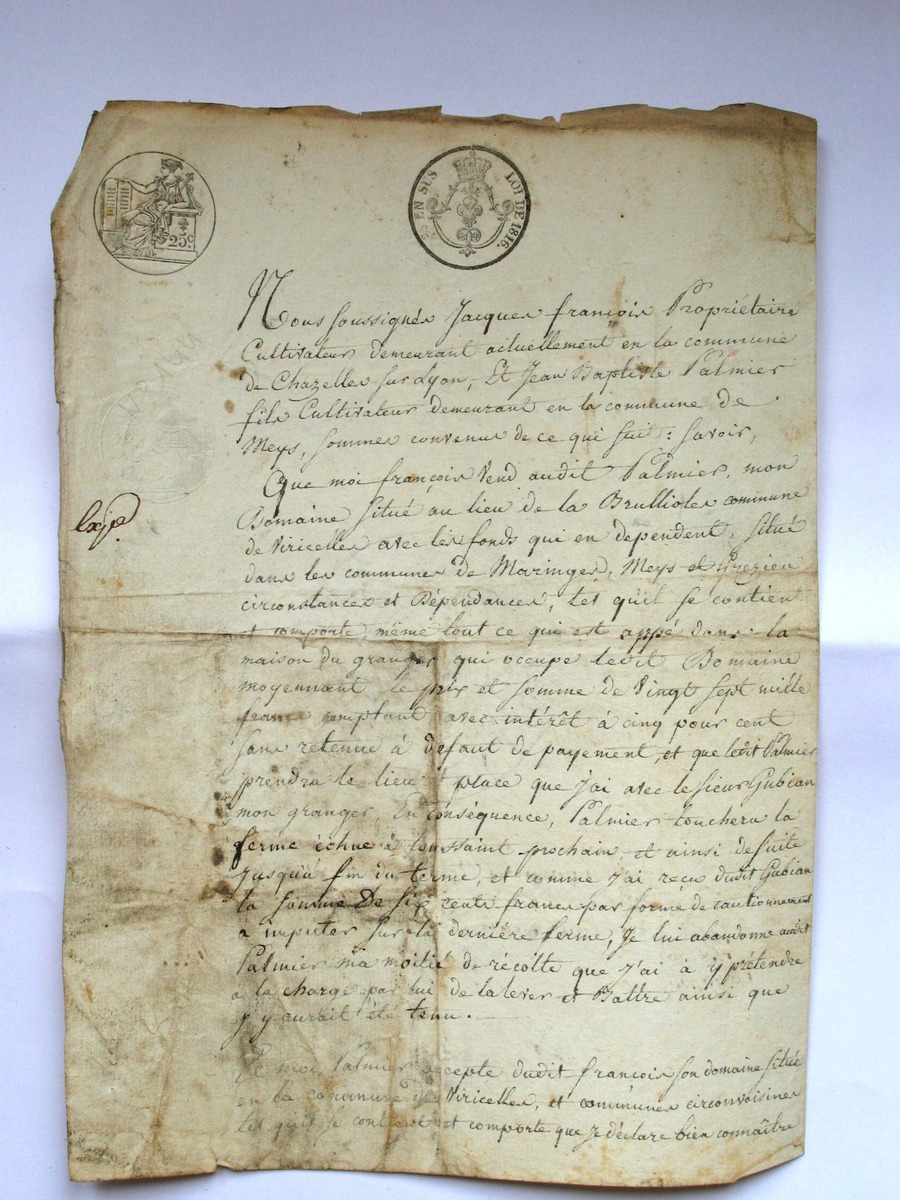 25c.
EN SUS LOI DE 1816.
Nous soussignés Jacques françois Propriétaire
Cultivateur demeurant actuellement en la commune
de Chazelles sur Lyon, Et Jean Baptiste Palmier
fils Cultivateur demeurant en la commune de
Meys, sommes convenus de ce qui suit : savoir,
Que moi françois Vend audit Palmier, mon
Domaine situé au lieu de la Brulliole commune
de Viricelles avec les fonds qui en dependent, situé
dans les communes de Maringes, Meys et Grezieu
circonstances et Dépendances, tel qu'il se contient
et comporte, même tout ce qui est appé dans la
maison du granger qui occupe ledit Domaine
moyennant le prix et somme de Vingt sept mille
francs comptant, avec intérêt à cinq pour cent
sans retenue à défaut de payement, et que ledit Palmier
prendra le lieu et place que j'ai avec le sieur Gubian
mon granger, En conséquence, Palmier touchera la
ferme échue à toussaint prochain, et ainsi de suite
jusqu'à fin du terme, et comme j'ai reçu dudit Gubian
la somme de six cents francs par forme de cautionnement
a imputer sur la dernière ferme, Je lui abandonne audit
Palmier ma moitié de récolte que j'ai à y prétendre
a la charge par lui de la lever et Battre ainsi que
j'y aurait été tenu.
Et moi Palmier accepte dudit françois son domaine située
en la commune de Viricelles, et communes circonvoisines
tel qu'il se contient et comporte que je déclare bien connaître